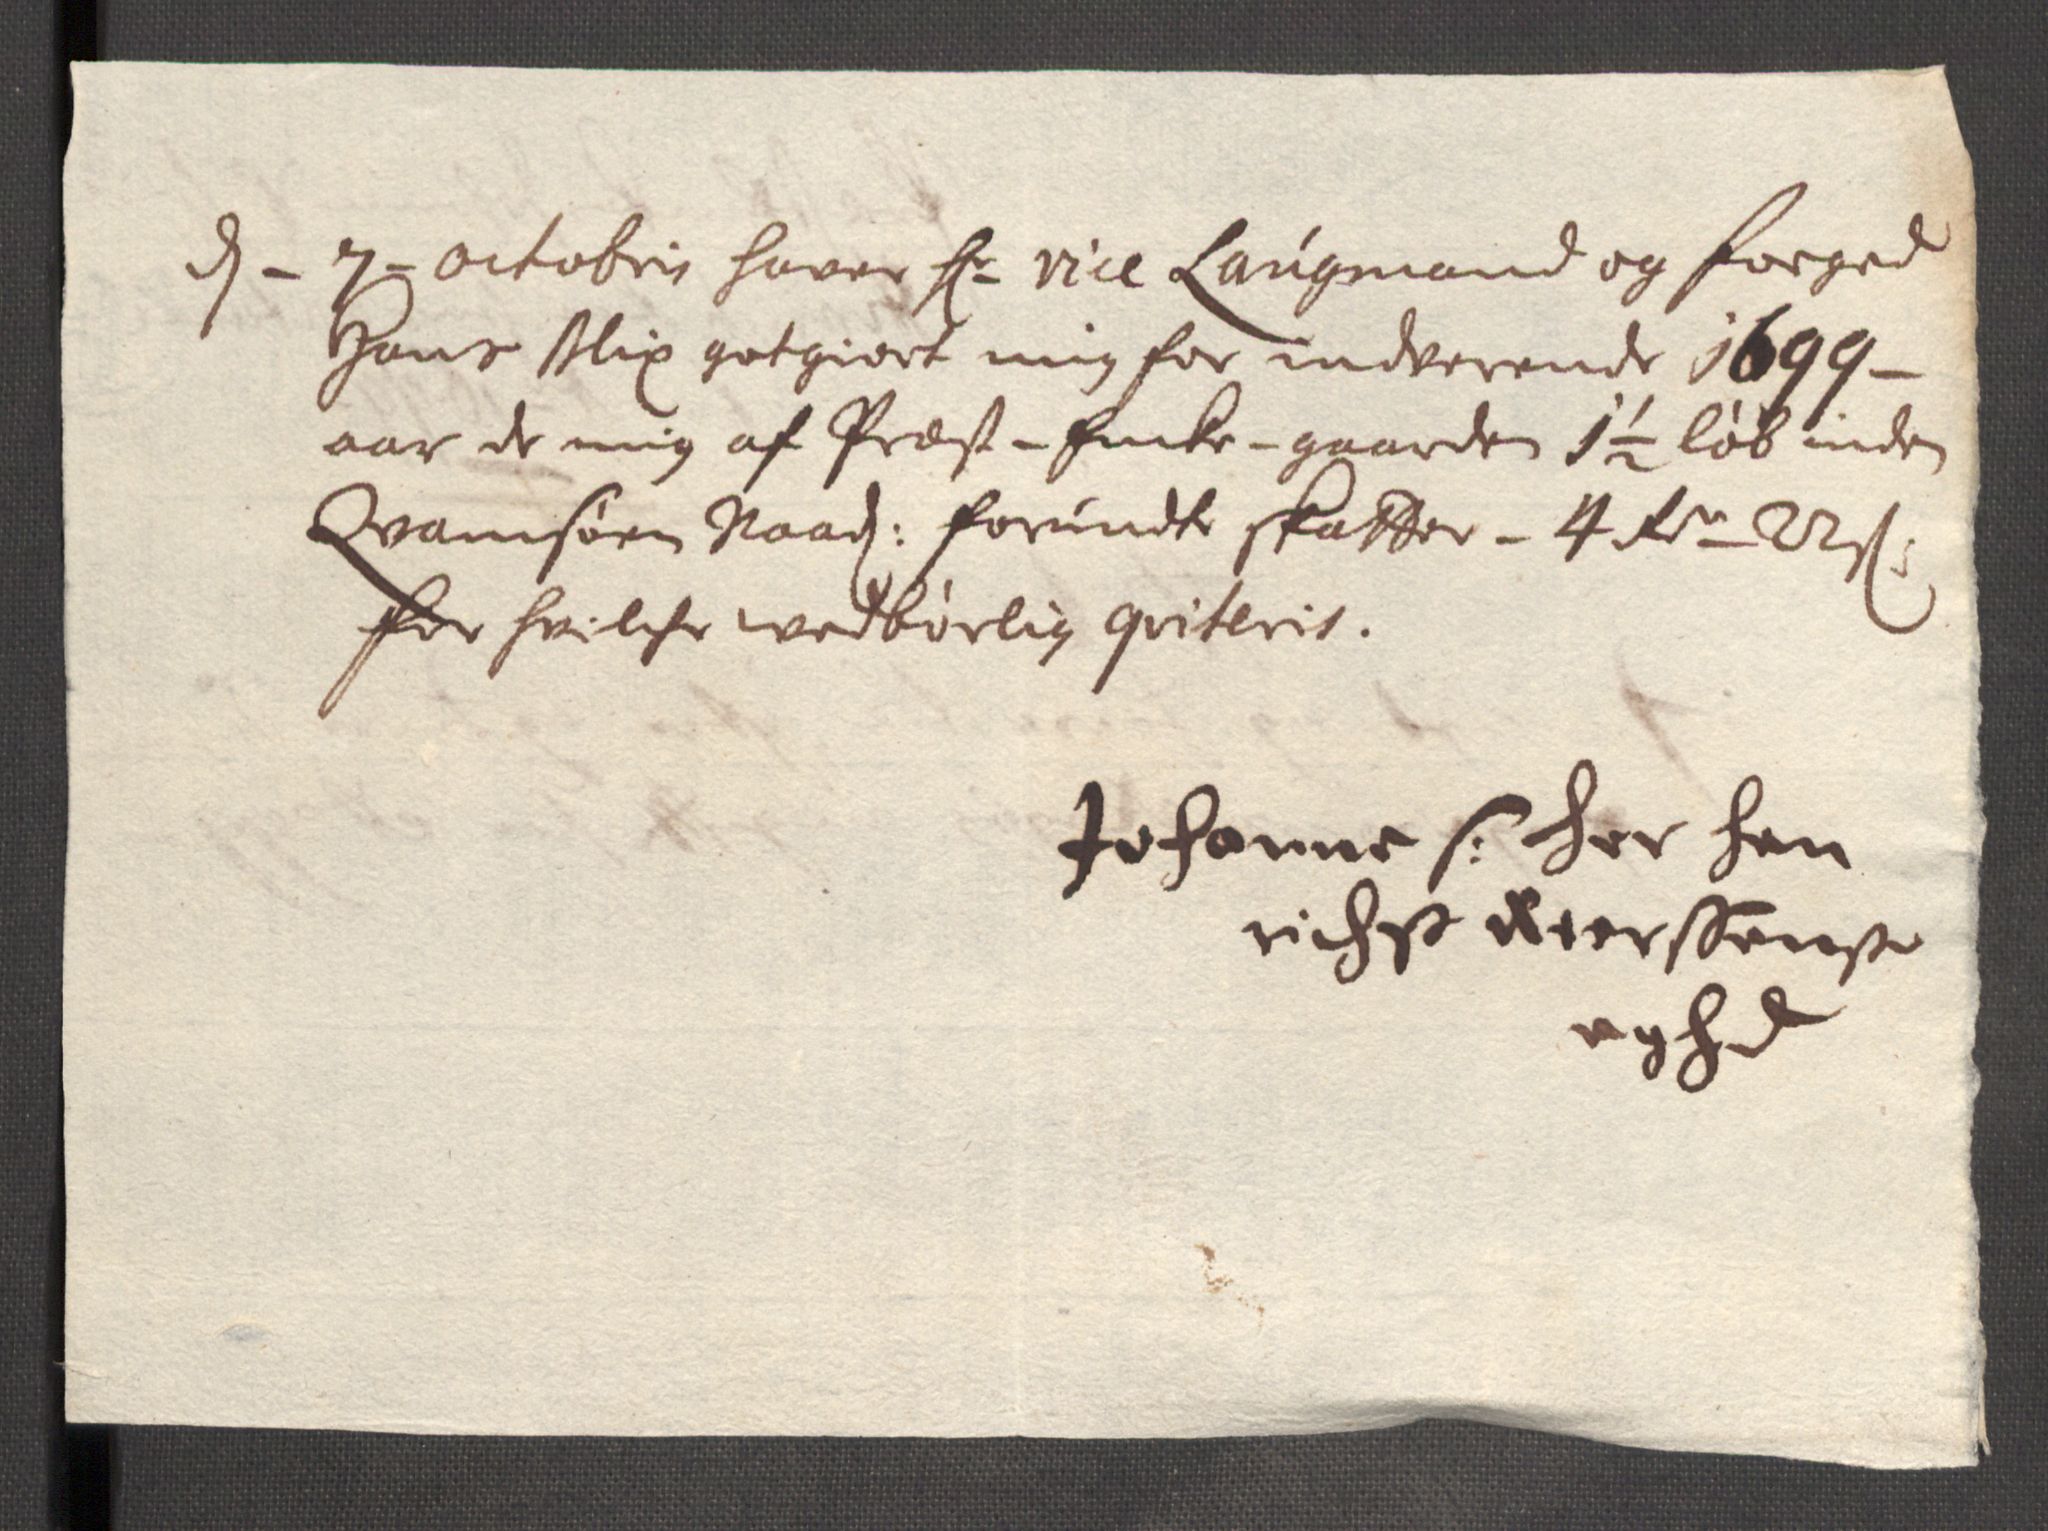 d. - 7 - octobris hafver hr: vice Laugmand og foeged
Hans Blix gotgiort mig for indverende 1699 -
aar de mig af Præst - Encke - gaarden 1½ løb inden
Qvamsøen Naad: forundte skatter - 4 rdr - 22 ß:
for hvilche vedbørlig qviteris.
Johanne s: her hen
richß